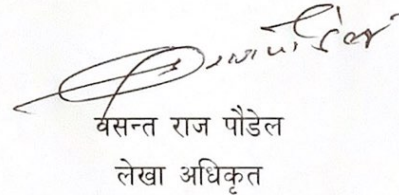 वसन्त राज पौडेल
लेखा अधिकृत